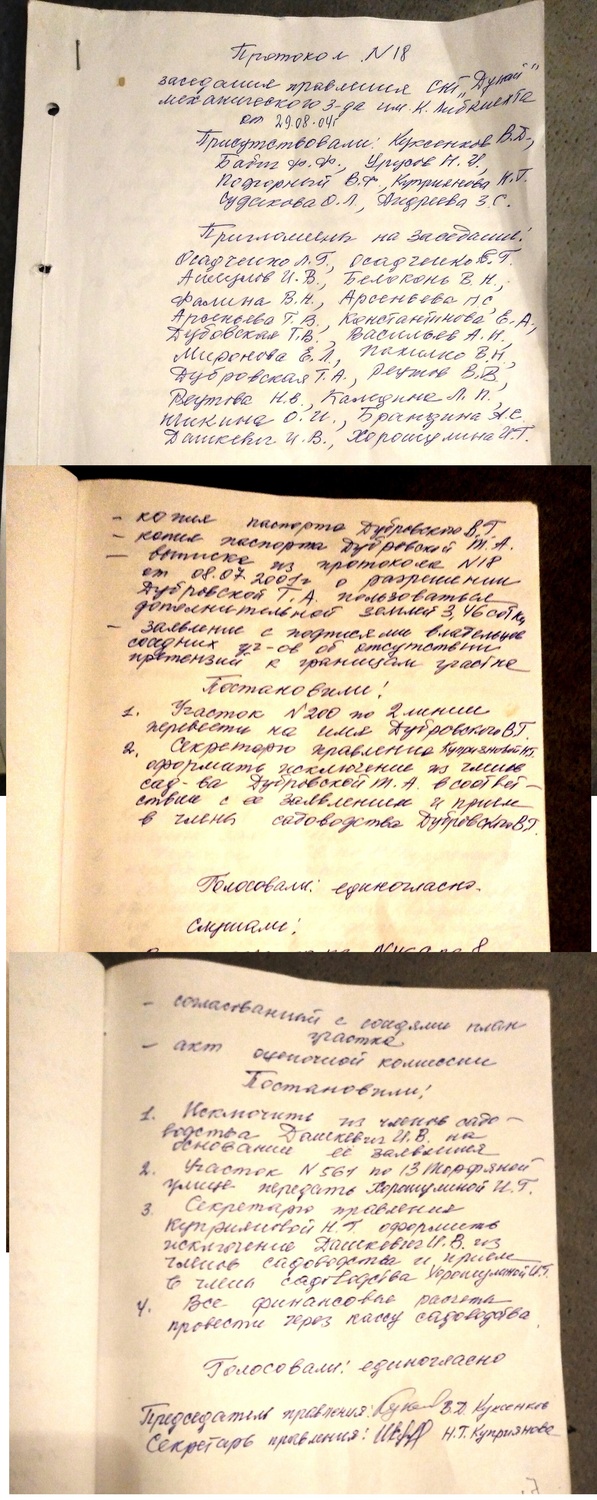 Протокол №18
заседания правления СНТ "Дунай"
механического з-да им. К. Либкнехта
от 29.08.04г
Присутствовали: Куксенков В.Д.,
Бабич Ф.Ф., Урусов Н.И,
Подгорный В.Ф, Куприянова Н.Т.
Судакова О.Л, Андреева З.С.
Приглашены на заседание:
Осадченко Л.Г, Осадченко В.Г.
И.В., Белоконь В.Н,
Фалина В.Н, Арсеньева Л.С
Арсеньева Г.В, Константинова Е.А,
Дубовская Т.В, Васильев А.Н,
Миронова Е.Л, Пахилко В.Н,
Дубровская Т.А, Реутов В.В,
Реутова Н.В, Каледина Л.П,
О.И., А.С.
Дашкевич И.В., Хорошулина И.Г.
- копия паспорта Дубровского В.Г.
- копия паспорта Дубровской Т.А.
- выписка из протокола №18
от 08.07.2001г о разрешении
Дубровской Т.А. пользоваться
дополнительной землей 3,46 сотки
- заявление с подписями владельцев
соседних уч-ов об отсутствии
претензий к границам участка
Постановили:
1. Участок №200 по 2 линии
перевести на имя Дубровского В.Г.
2. Секретарю правления Куприяновой Н.Т.
оформить исключение из членов
сад-ва Дубровской Т.А. в соответ-
ствии с ее заявлением и прием
в члены садоводства Дубровского В.Г.
Голосовали: единогласно.
Слушали:
- согласованный с соседями план
участка
- акт оценочной комиссии
Постановили:
1. Исключить из членов садо-
водства Дашкевич И.В. на
основании ее заявления
2. Участок №561 по 13 Торфяной
улице передать Хорошулиной И.Г.
3. Секретарю правления
Куприяновой Н.Т оформить
исключение Дашкевич И.В. из
членов садоводства и прием
в члены садоводства Хорошулиной И.Г.
4. Все финансовые расчеты
провести через кассу садоводства.
Голосовали: единогласно
Председатель правления: В.Д. Куксенков
Секретарь правления: Н.Т. Куприянова